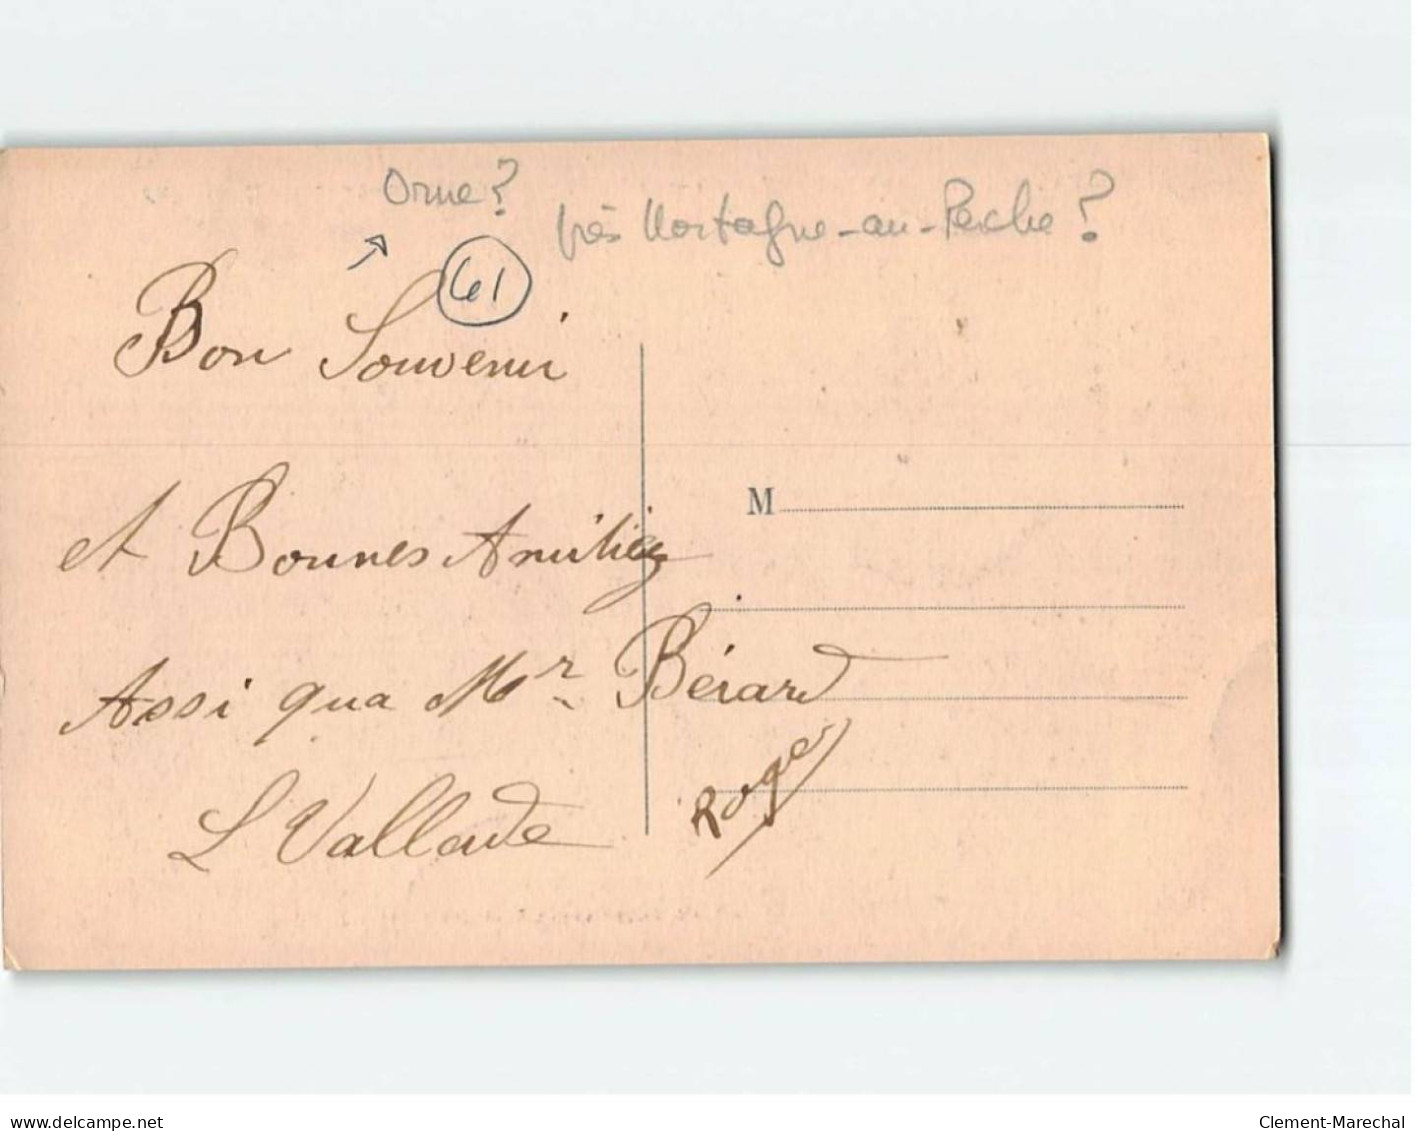 Orne?
près Mortagne-au-Perche?
61
Bon Souvenir
et Bonnes Amitiéz
M
Assi qua Mr. Bérard
Roger
L Vallade
www.delcampe.net
Clement-Marechal